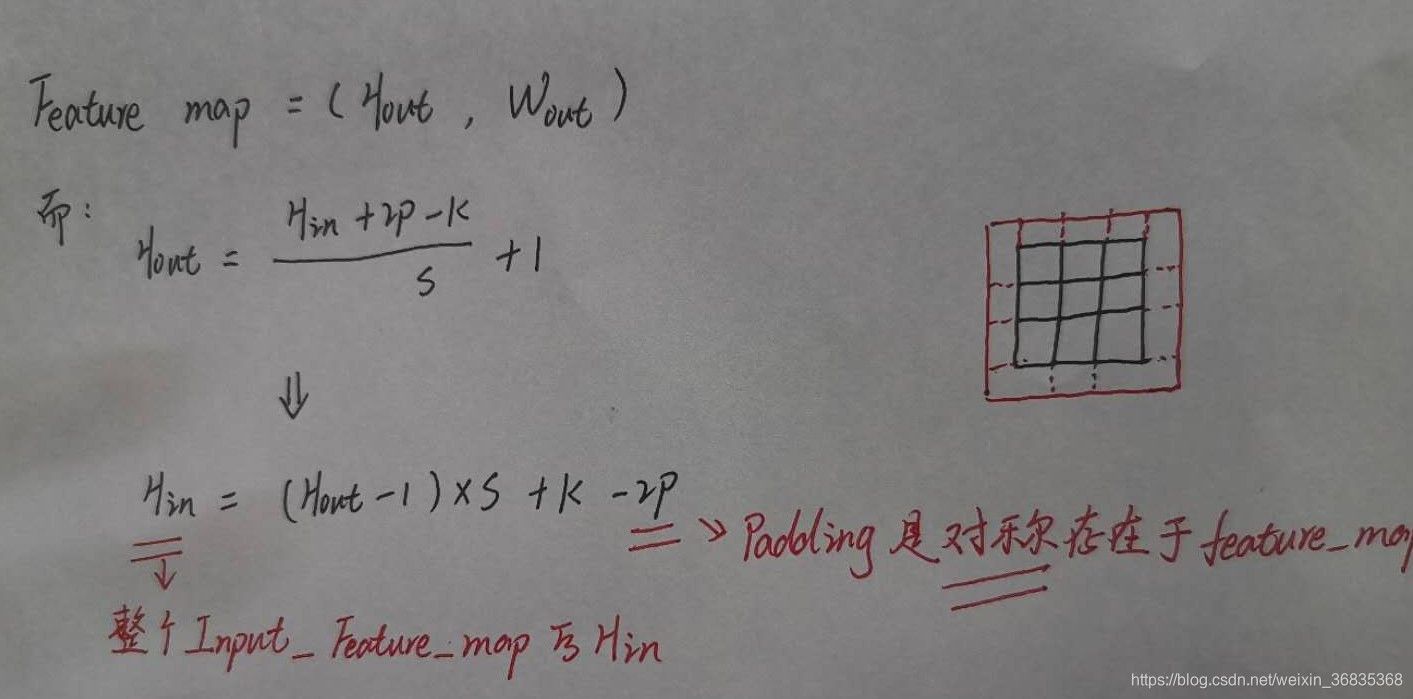 Feature map = (Hout, Wout)
而:
Hout = (Hin + 2P - K) / S + 1
⇓
Hin = (Hout - 1) × S + K - 2P
Padding 是对称存在于 feature_map
整个 Input_Feature_map 为 Hin
https://blog.csdn.net/weixin_36835368